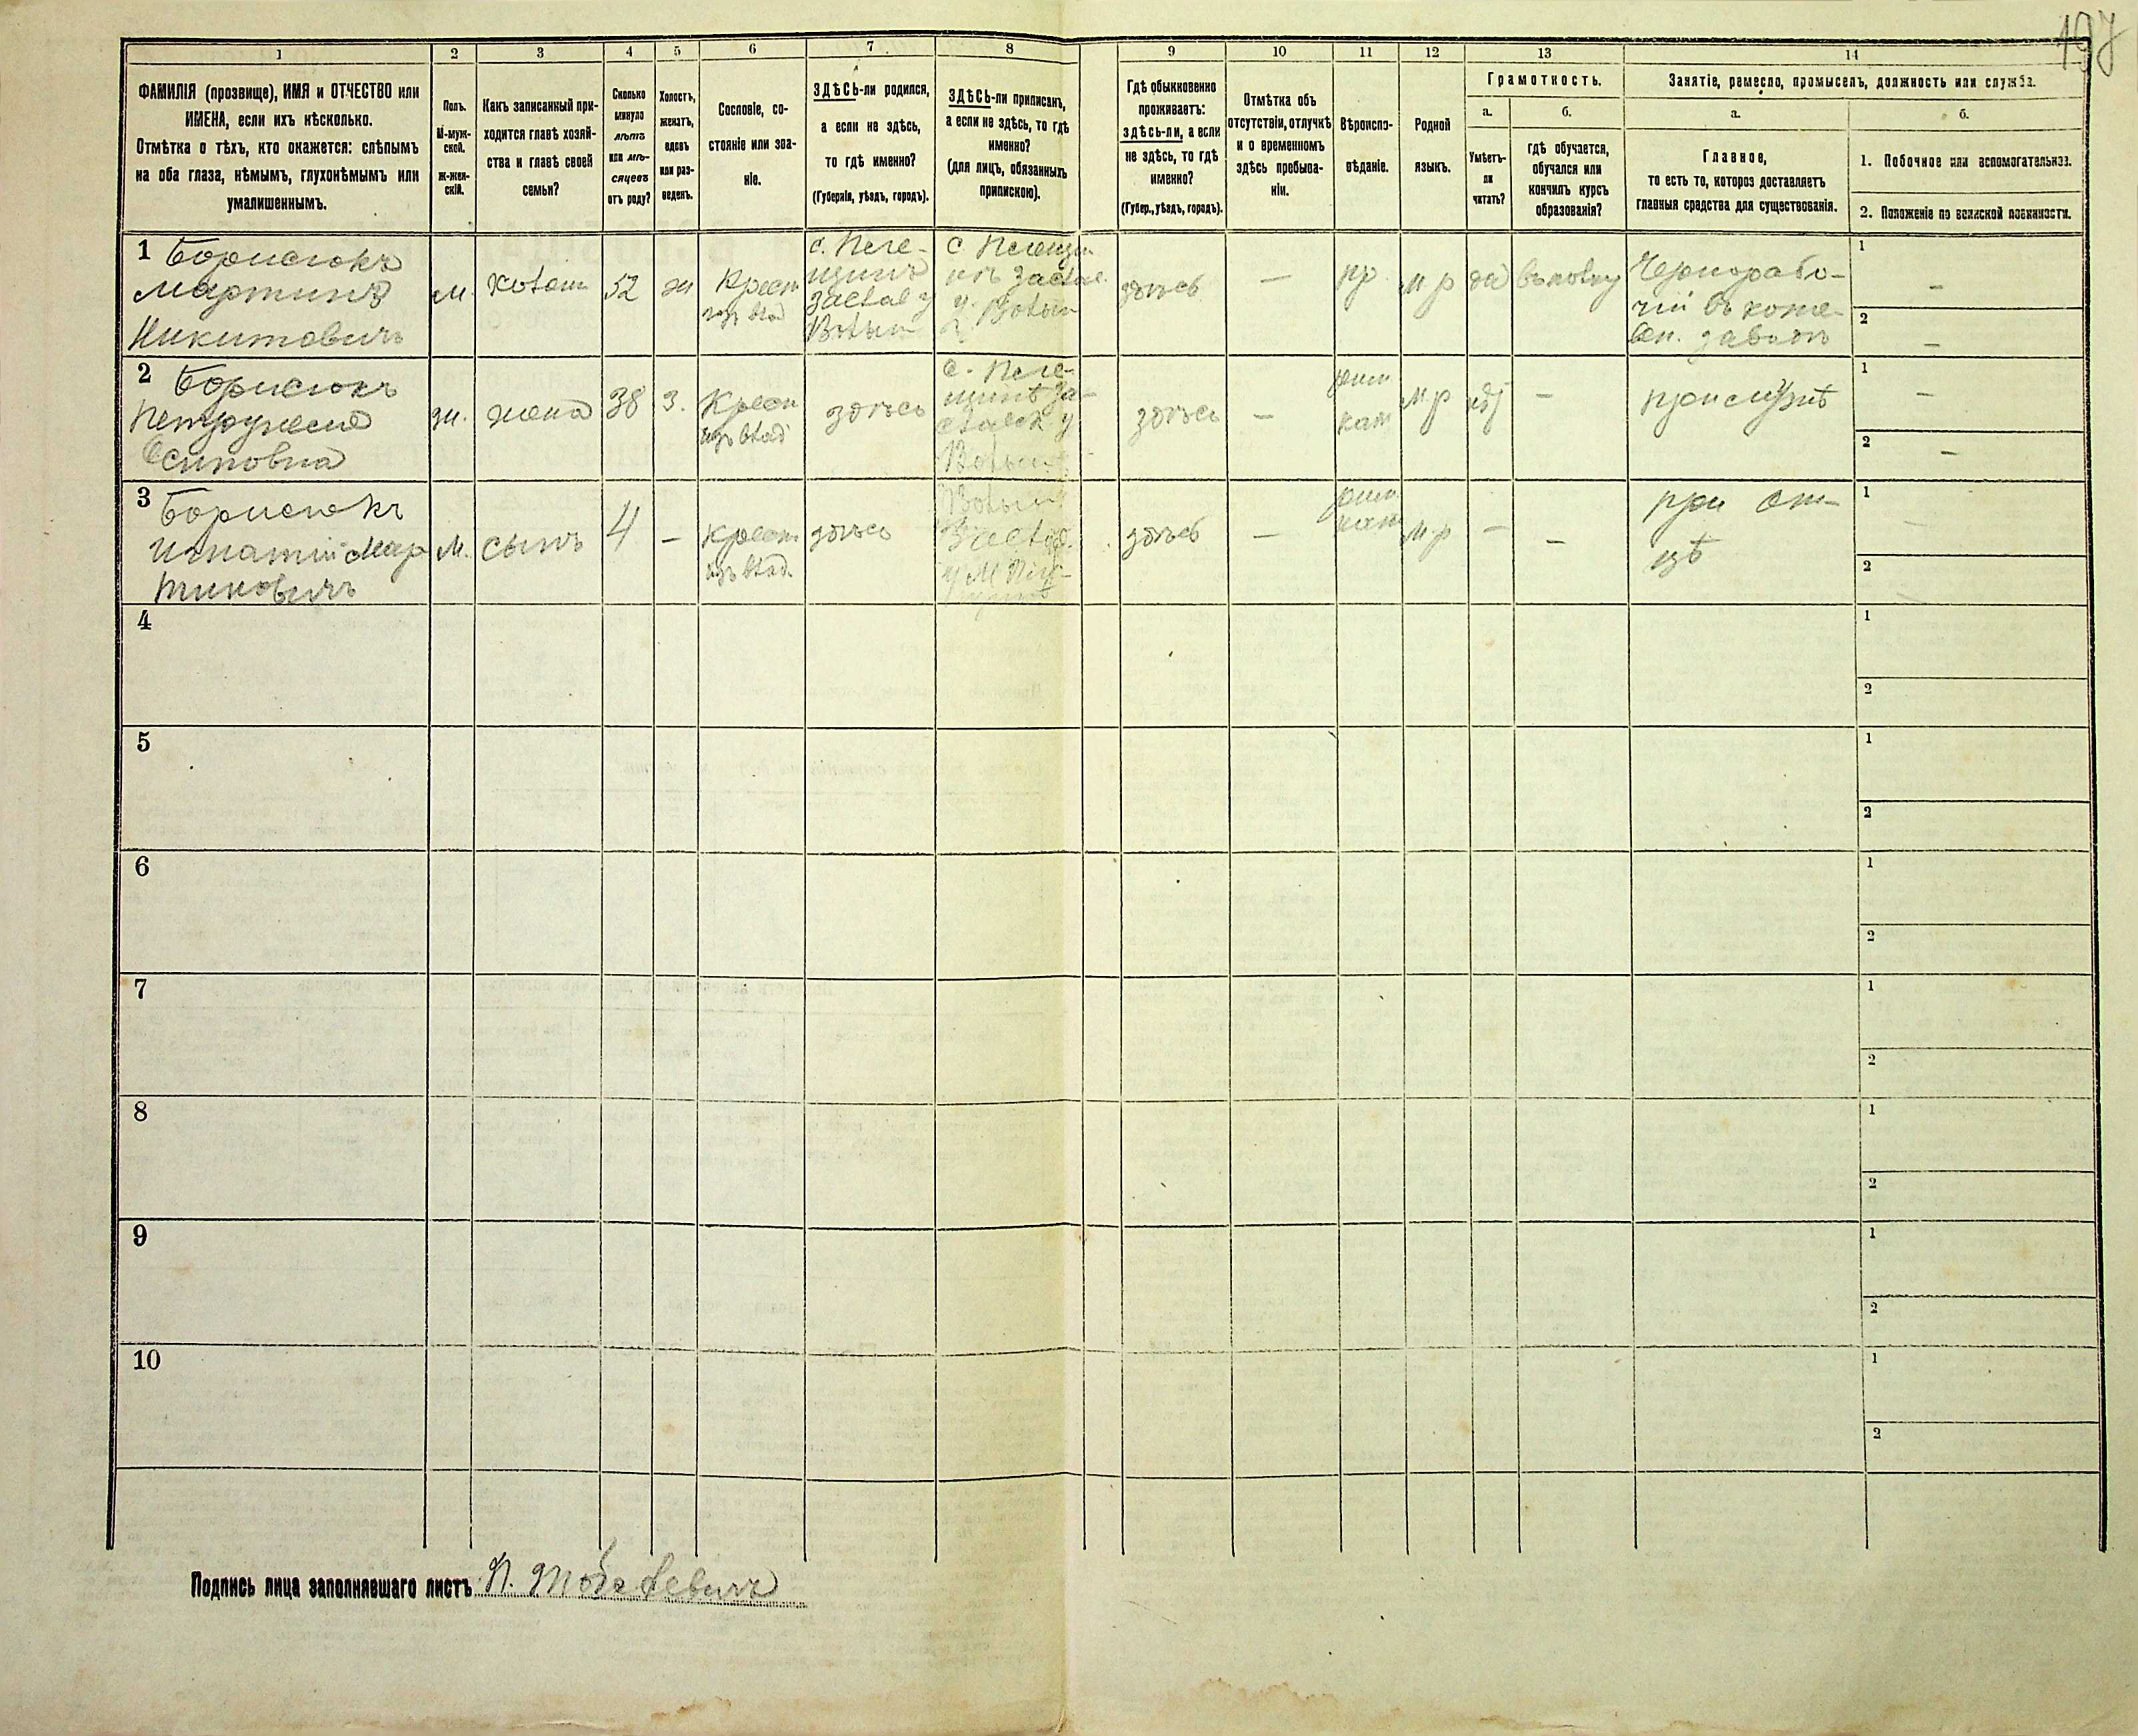 197
1 2 3 4 5 6 7 8 9 10 11 12 13 14
ФАМИЛІЯ (прозвище), ИМЯ и ОТЧЕСТВО или
ИМЕНА, если ихъ нѣсколько.
Отмѣтка о тѣхъ, кто окажется: слѣпымъ
на оба глаза, нѣмымъ, глухонѣмымъ или
умалишеннымъ.
Полъ.
М-муж-
ской.
Ж-жен-
скій.
Какъ записанный при-
ходится главѣ хозяй-
ства и главѣ своей
семьи?
Сколько
минуло
лѣтъ
или мѣ-
сяцевъ
отъ роду?
Холостъ,
женатъ,
вдовъ
или раз-
веденъ.
Сословіе, со-
стояніе или зва-
ніе.
ЗДѢСЬ-ли родился,
а если не здѣсь,
то гдѣ именно?
(Губернія, уѣздъ, городъ).
ЗДѢСЬ-ли приписанъ,
а если не здѣсь, то гдѣ
именно?
(для лицъ, обязанныхъ
припискою).
Гдѣ обыкновенно
проживаетъ:
здѣсь-ли, а если
не здѣсь, то гдѣ
именно?
(Губер., уѣздъ, городъ).
Отмѣтка объ
отсутствіи, отлучкѣ
и о временномъ
здѣсь пребыва-
ніи.
Вѣроиспо-
вѣданіе.
Родной
языкъ.
Грамотность.
а.
Умѣетъ-
ли
читать?
б.
гдѣ обучается,
обучался или
кончилъ курсъ
образованія?
Занятіе, ремесло, промыселъ, должность или служба.
а.
Главное,
то есть то, которое доставляетъ
главныя средства для существованія.
б.
1. Побочное или вспомогательное.
2. Положеніе по воинской повинности.
1 Борисюкъ
Мартинъ
Никитовичъ
м.
52
Крест
с. Пеге-
здѣсь
—
пр.
м р
да
Чернорабо-
чій въ коже-
вен. заводѣ
1 –
2 –
2 Борисюкъ
Осиповна
ж.
жена
38
З.
Крест
здѣсь
здѣсь
—
рим
кат
м р
–
1 –
2 –
3 Борисюкъ
Игнатій Мар
тиновичъ
М.
сынъ
4
–
Крест
здѣсь
здѣсь
—
рим
кат
м р
–
–
при от-
цѣ
1
2
4
1
2
5
1
2
6
1
2
7
1
2
8
1
2
9
1
2
10
1
2
Подпись лица заполнявшаго листъ